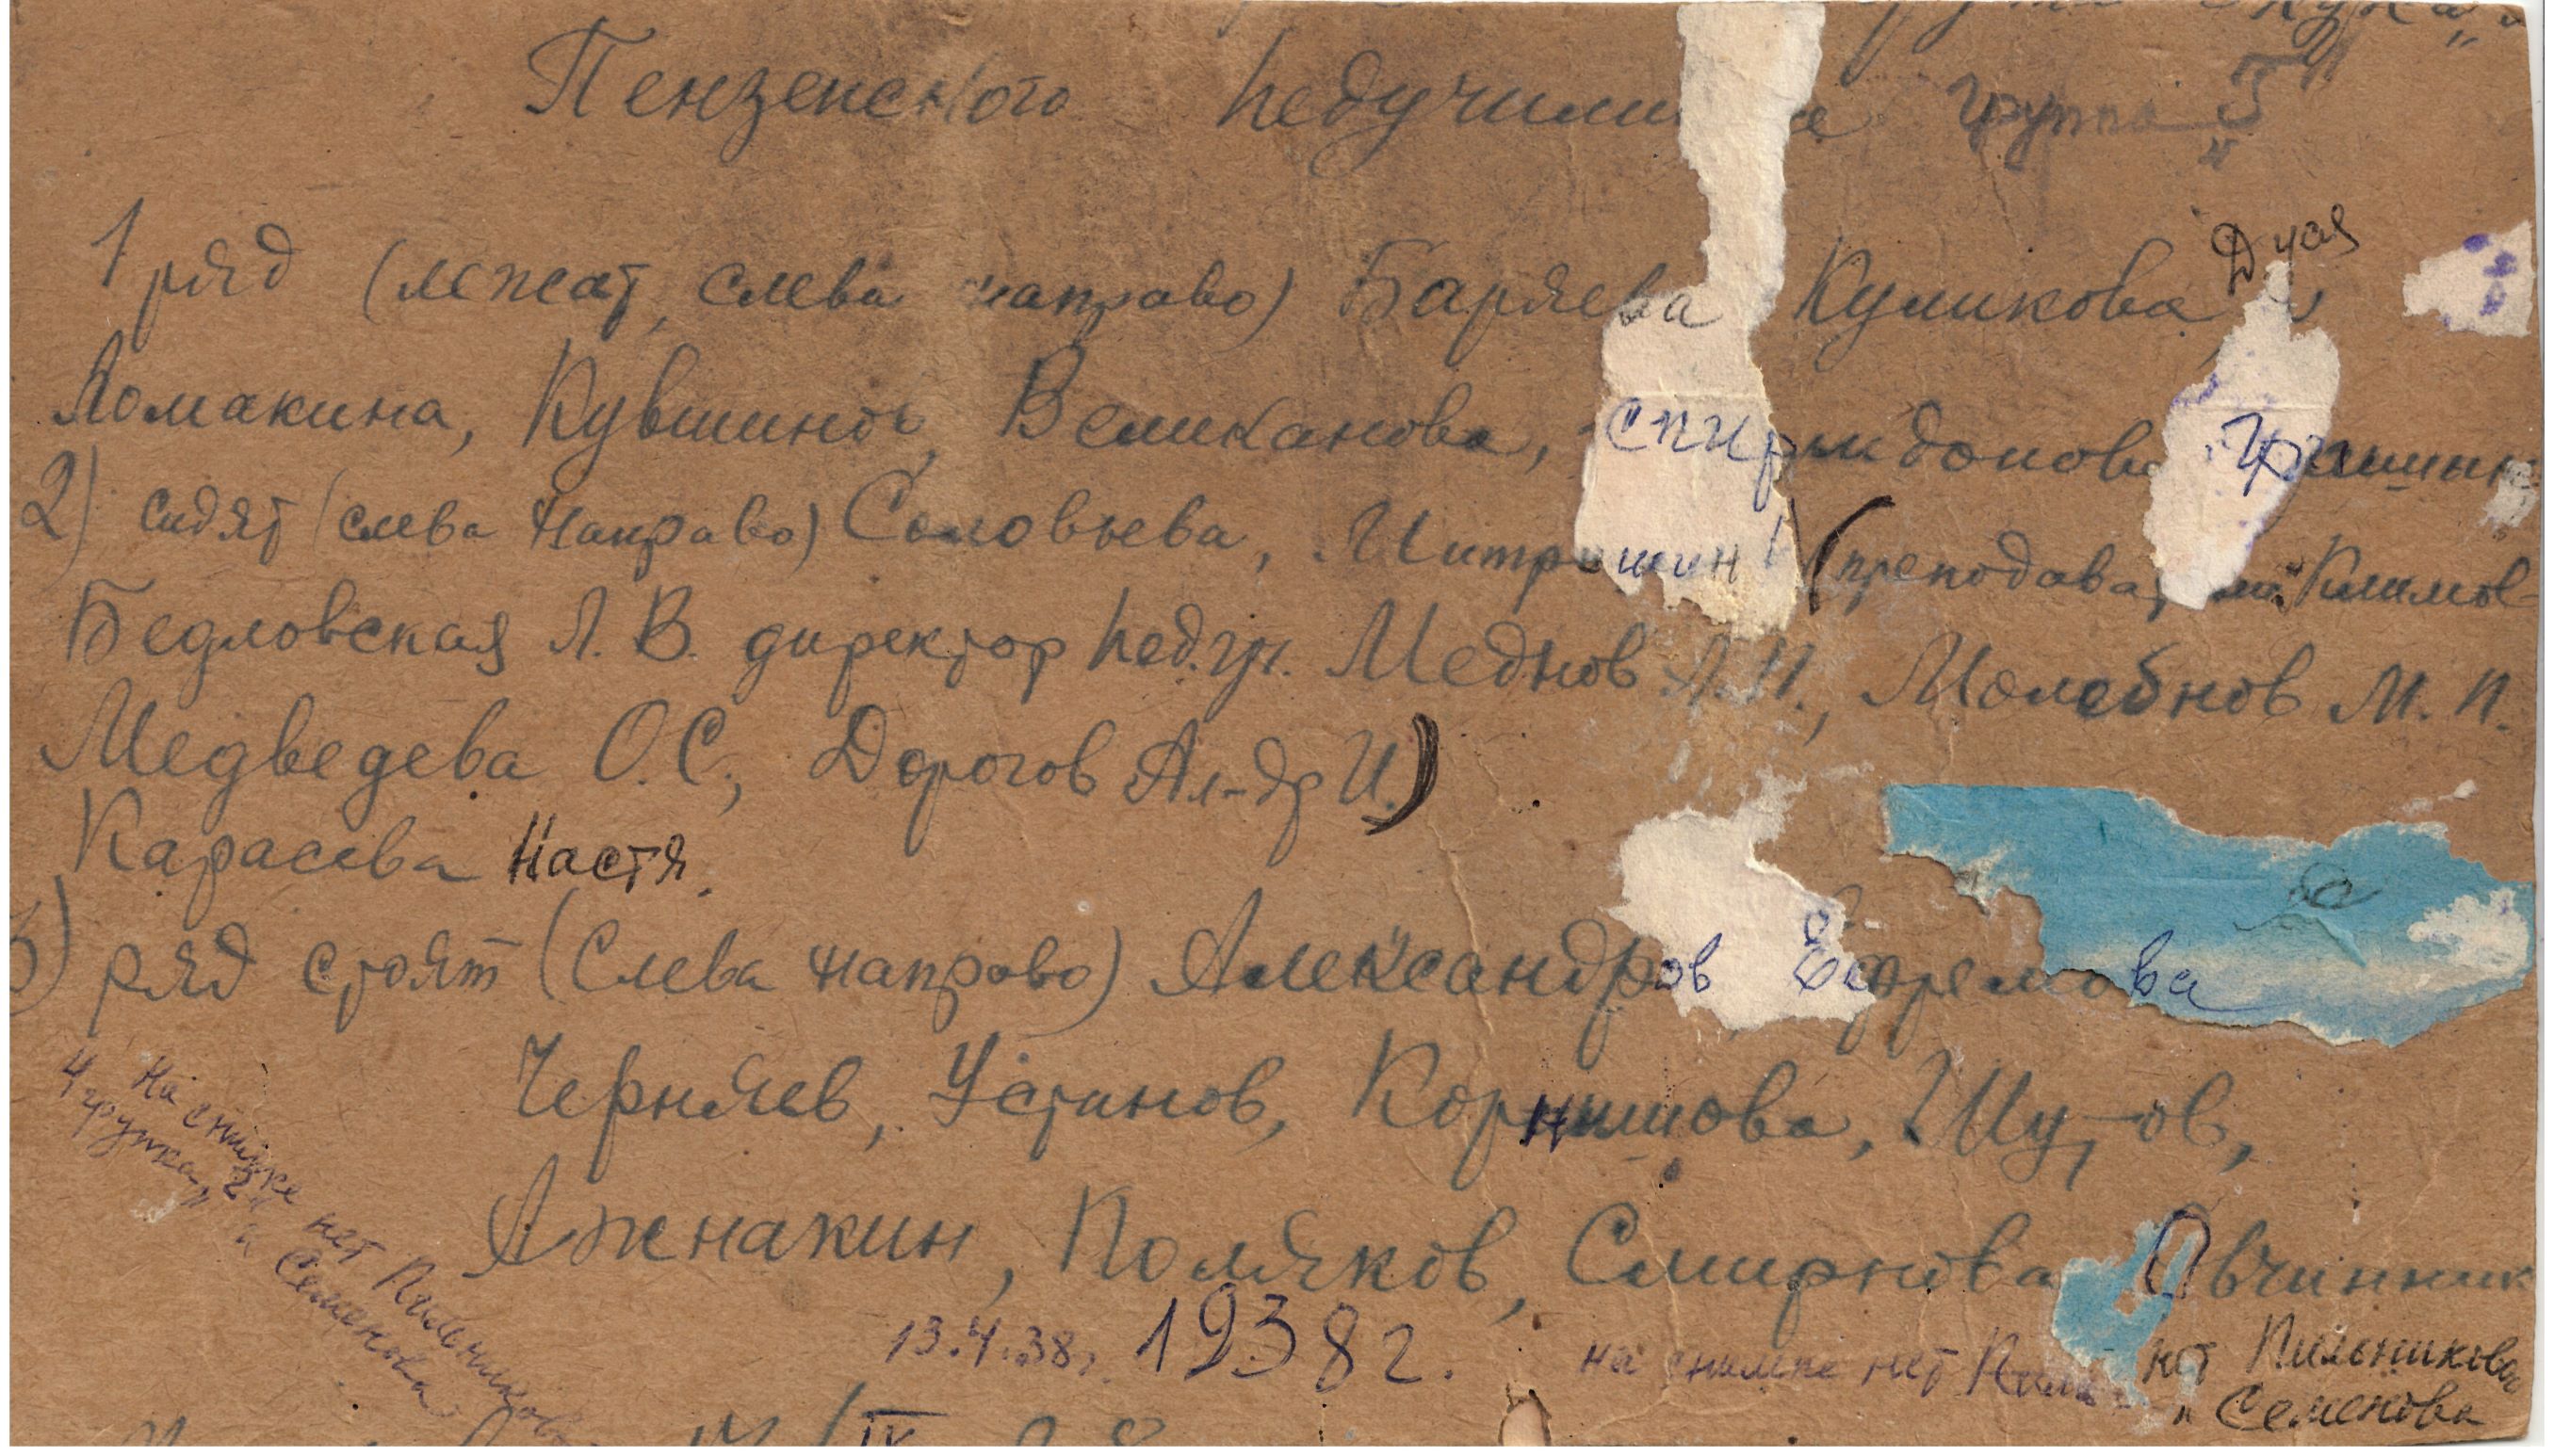 Пензенского педучилище группа „З"
1 ряд (лежат, слева направо) Баряева Куликова Дуся
Ломакина, Кувшинов, Великанова, Спиридонова Гришин
2) сидят (слева направо) Соловьева, Митрошин (преподаватели Климов-
Бедловская Л. В. директор пед.уч. Меднов А.И., Молебнов М. П.
Медведева О.С., Дорогов Ал-др И.)
Карасева Настя.
3) ряд стоят (слева направо) Александров Ефремова
Черняев, Устинов, Корнишова, Шутов,
Ажнакин, Поляков, Смирнова Овчинник
13.4.38г. 1938 г.
на снимке нет нет Пильникова
и Семенова
На снимке нет Пильникова
4 группа „2" и Семенова